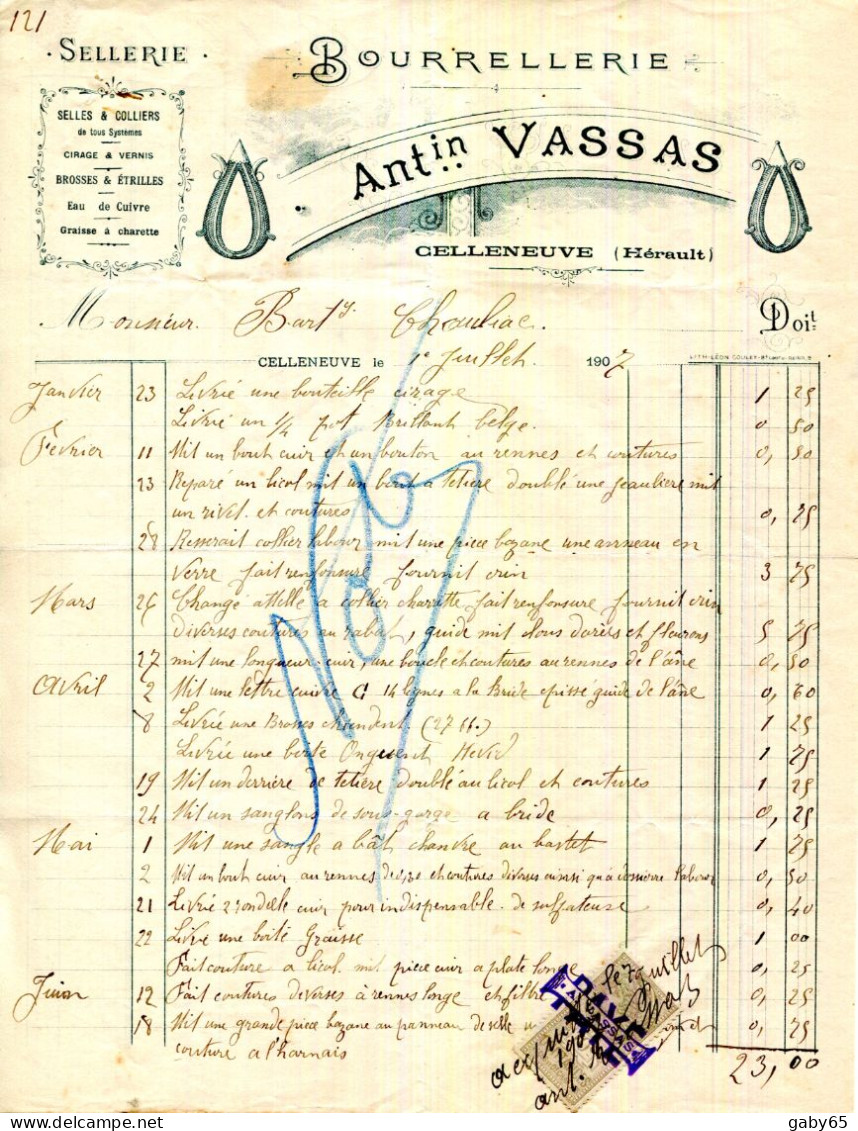 121
· SELLERIE ·
BOURRELLERIE
SELLES & COLLIERS
de tous Systèmes
CIRAGE & VERNIS
BROSSES & ÉTRILLES
Eau de Cuivre
Graisse à charette
Antin VASSAS
CELLENEUVE (Hérault)
Monsieur Barty Chauliac Doit
CELLENEUVE le 1er Juillet 1907
Janvier 23 Livrié une bouteille cirage 1 25
Livrié un 1/4 pot Brillant belge 0 50
Fevrier 11 Mit un bout cuir et un bouton au rennes et coutures 0,50
23 Reparé un licol mit un bout a tetiere doublé une mit
un rivet et coutures 0,25
28 Resserait collier labour mit une piece bazane une anneau en
verre fait renfonsure fournit crin 3 75
Mars 26 Changé attelle a collier charette fait renfonsure fournit crin
diverses coutures au rabat, guide mit clous dorérs et fleurons 5 75
27 mit une longueur cuir, une boucle et coutures au rennes de l'âne 0,50
Avril 2 Mit une lettre cuivre C 14 lignes a la Bride epissé guide de l'âne 0,60
8 Livrié une Brosses chiendent (27 66.) 1 25
Livrié une boite Onguent 1 75
19 Mit un derrière de tetière doublé au licol et coutures 1 25
24 Mit un sanglons de sous-gorge a bride 0,25
Mai 1 Mit une sangle a bât chanvre au bastet 1 75
2 Mit un bout cuir au rennes et coutures diverses ainsi qu'a labour 0,50
21 Livrié 2 rondelle cuir pour indispensable de sulfateuse 0,40
22 Livrié une boité Graisse 1 00
Fait couture a licol mit piece cuir a plate longe 0,25
Juin 12 Fait coutures deverses à rennes longe et filtre 0,25
18 Mit une grande piece bazane au panneau de selle 0,75
couture a l'harnais
23,00
PAYÉ
A. VASSAS
LITH. LÉON COULET
delcampe.net
gaby65